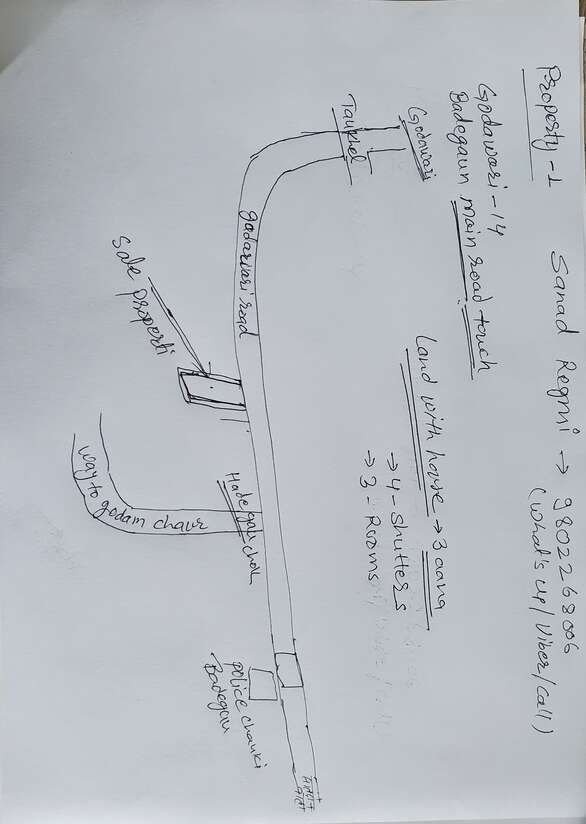 Property-1
Sanad Regmi → 9802268006
(what's up/Viber/call)
Godawari-14
Badegaun main road touch
Land with house → 3 aana
→ 4 - Shutters
→ 3 - Rooms
Godawari
Taukhel
godawari road
Sale properti
Hadegau chok
way to godam chaur
police chauki
Badegau